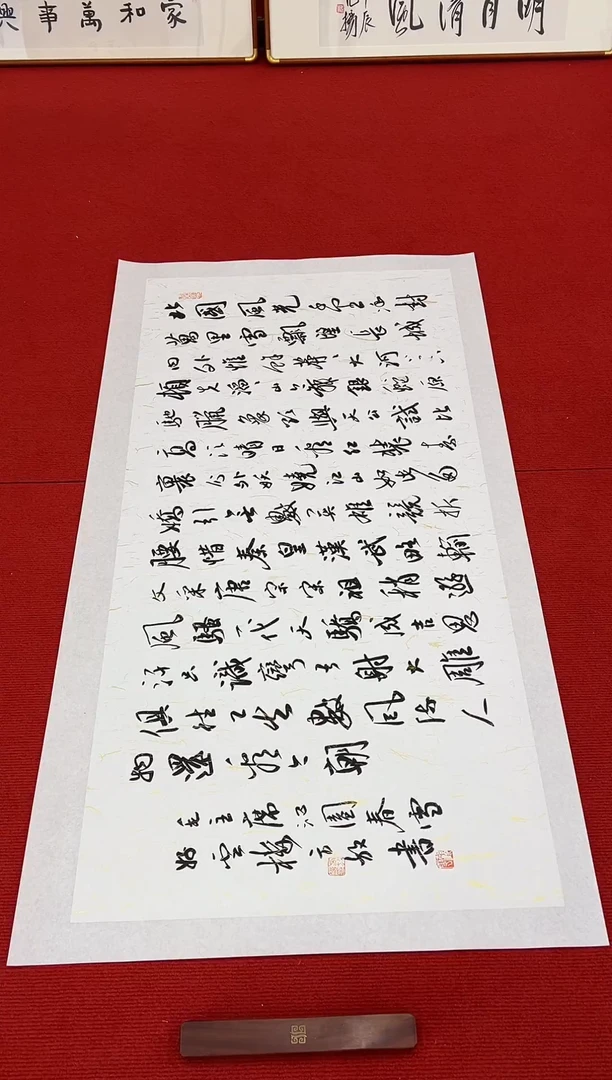 家和萬事興
明月清風
北國風光千里冰封
萬里雪飄望長城
内外惟餘莽莽大河上下
頓失滔滔山舞銀蛇原
馳臘象欲與天公試比
高須晴日看紅裝素
裹分外妖嬈江山如此多
嬌引無數英雄競折
腰惜秦皇漢武略輸
文采唐宗宋祖稍遜
風騷一代天驕成吉思
汗只識彎弓射大雕
俱往矣數風流人
物還看今朝
毛主席沁園春雪
書